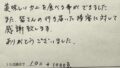 美味しいカニを食べる事ができました
また、皆さんの行き届いた接客に対して
感謝致します。
ありがとうございました。